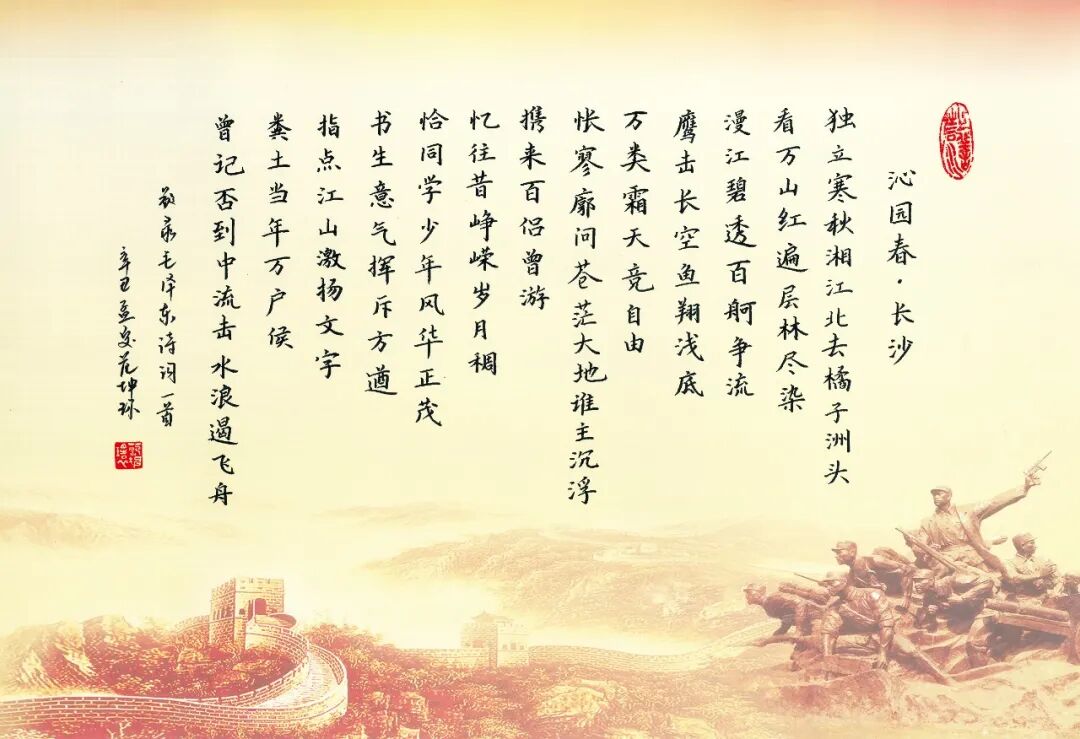 沁园春·长沙
独立寒秋湘江北去橘子洲头
看万山红遍层林尽染
漫江碧透百舸争流
鹰击长空鱼翔浅底
万类霜天竞自由
怅寥廓问苍茫大地谁主沉浮
携来百侣曾游
忆往昔峥嵘岁月稠
恰同学少年风华正茂
书生意气挥斥方遒
指点江山激扬文字
粪土当年万户侯
曾记否到中流击水浪遏飞舟
敬录毛泽东诗词一首
辛丑孟夏范坤环